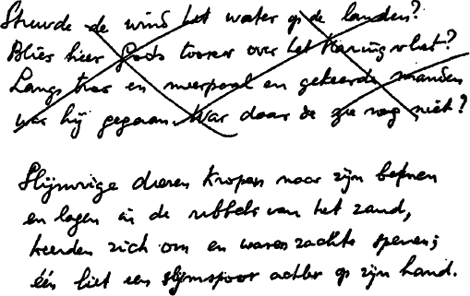 Stuurde de wind het water op de landen?
Blies hier Gods toorn over het Haringvliet?
Langs tros en meerpaal en gekeerde manden
was hij gegaan. War daar de zee nog niet?
Slijmerige dieren kropen naar zijn benen
en lagen in de ribbels van het zand,
keerden zich om en waren zachte spenen;
één liet een slijmspoor achter op zijn hand.